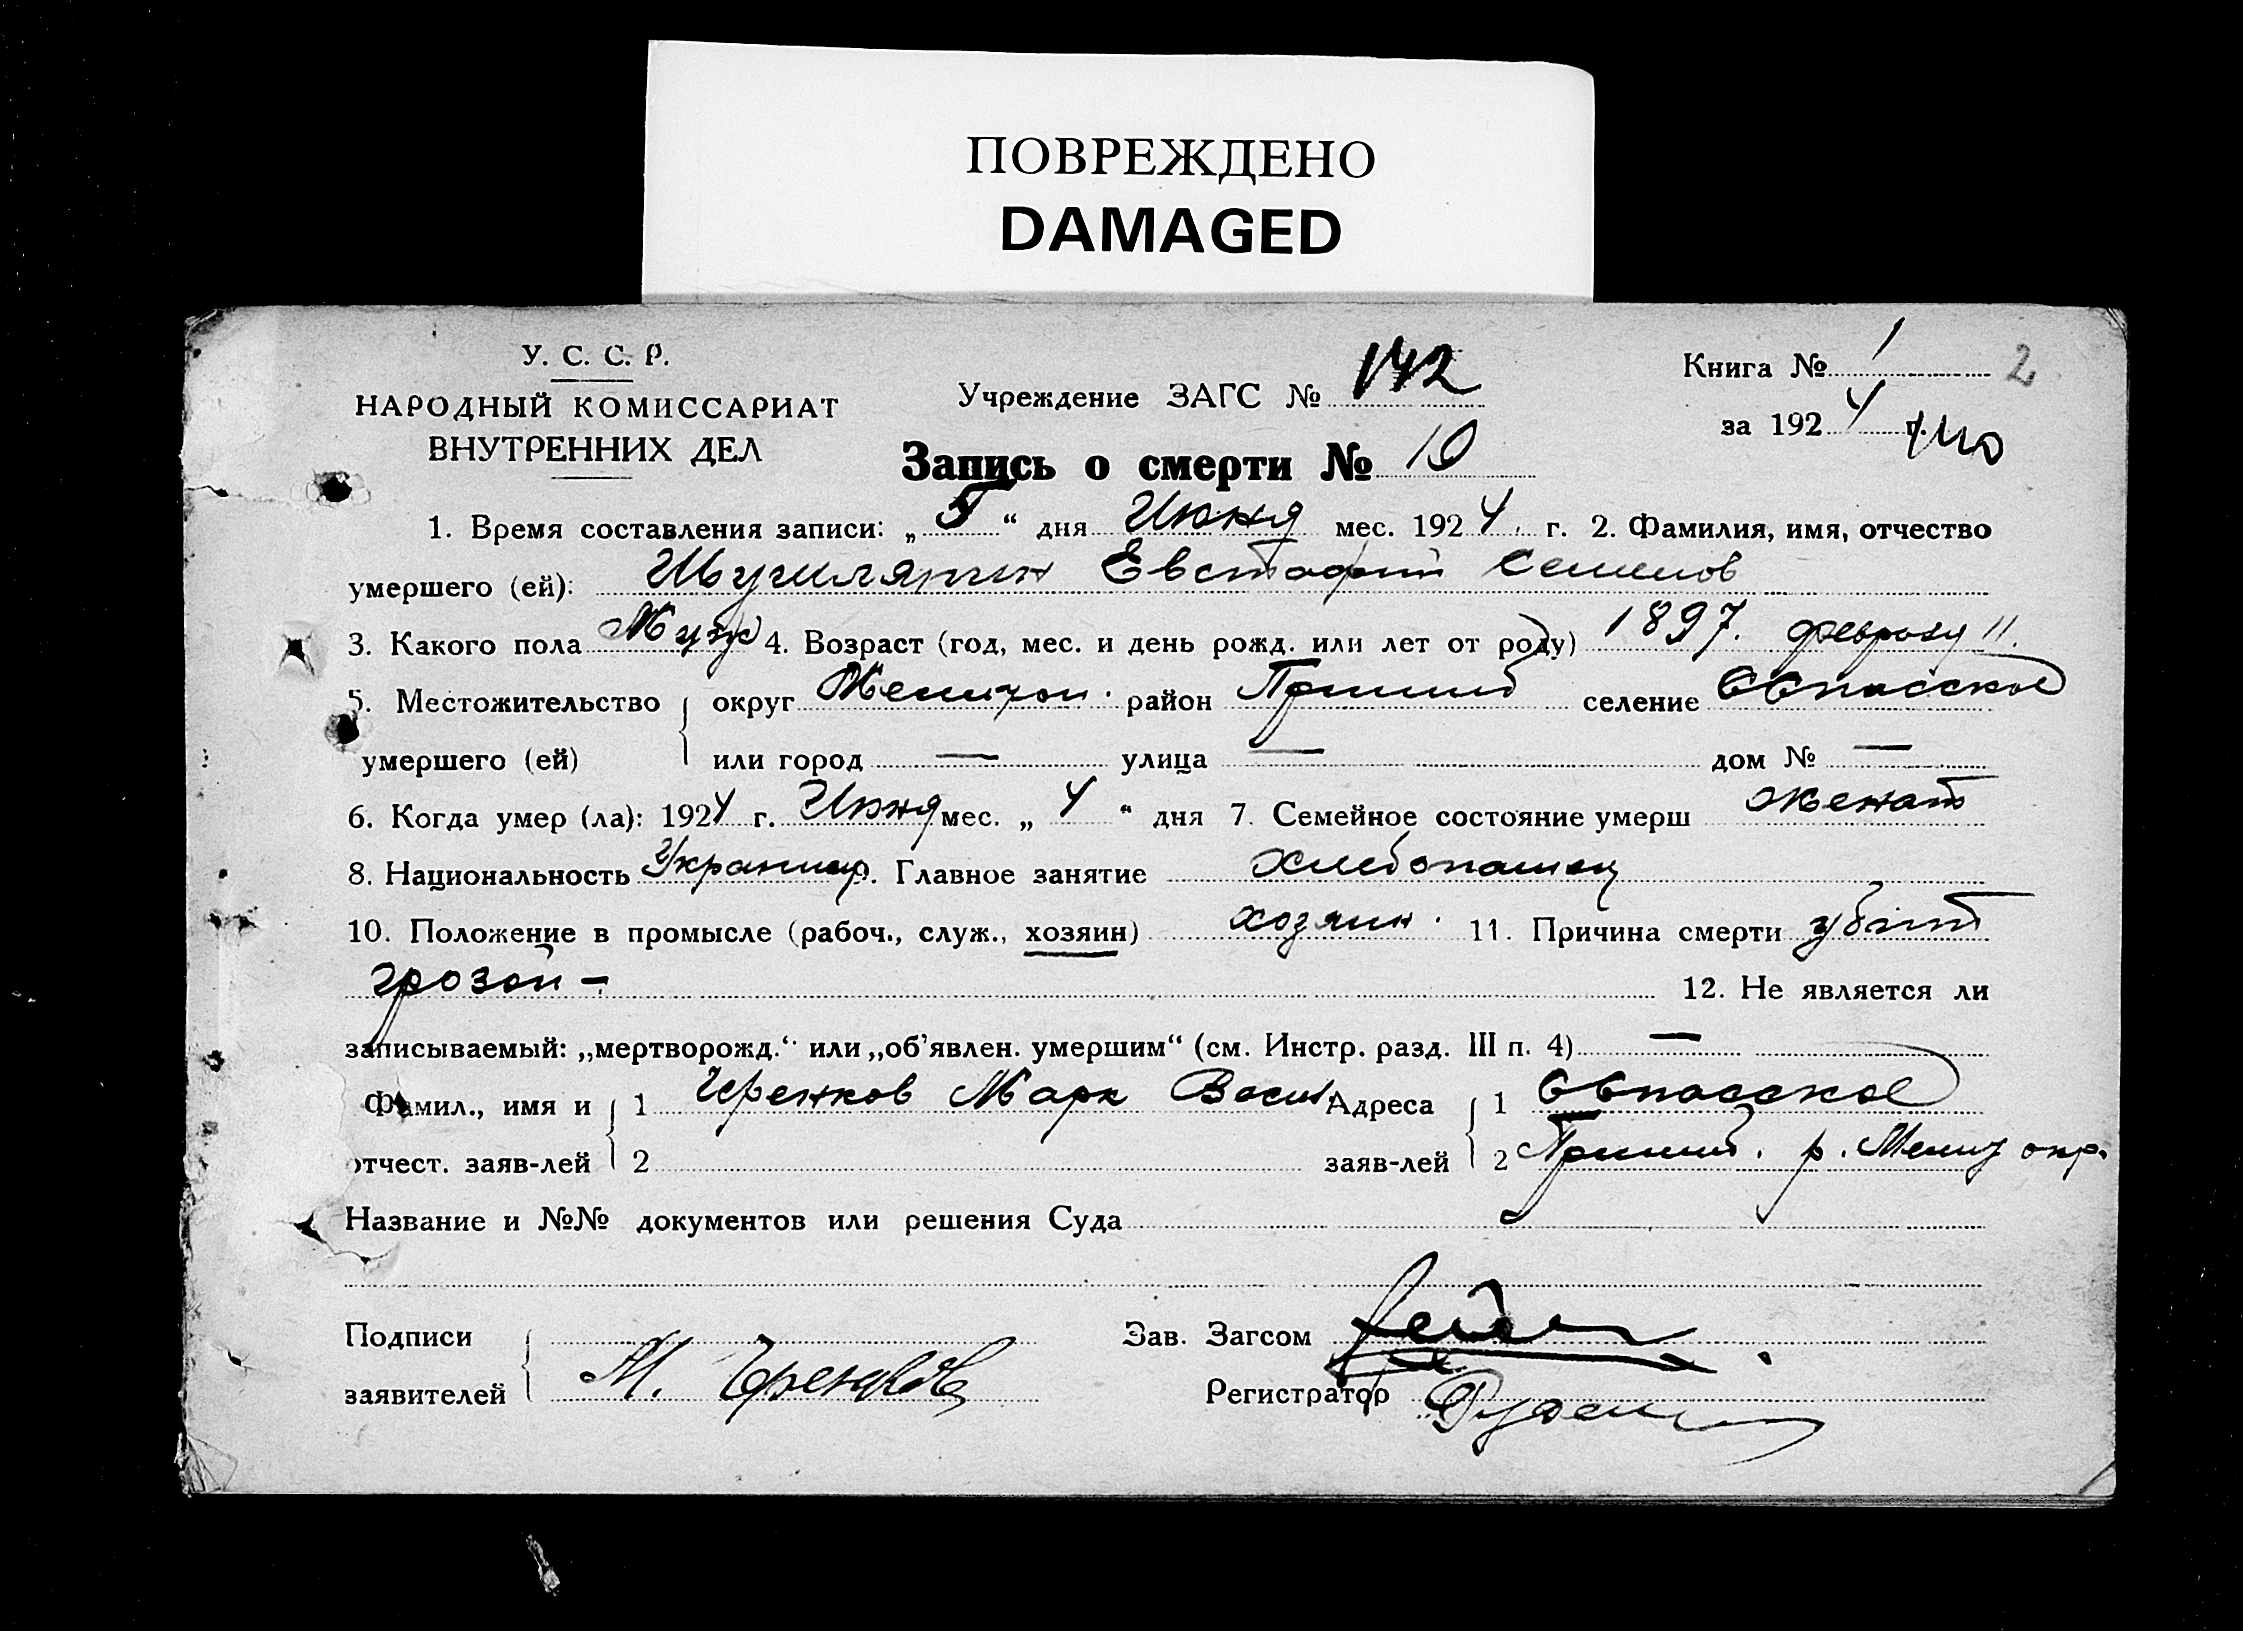 ПОВРЕЖДЕНО
DAMAGED
У. С. С. Р.
НАРОДНЫЙ КОМИССАРИАТ
ВНУТРЕННИХ ДЕЛ
Учреждение ЗАГС № 142
Книга № 1 2
за 1924 г.
Запись о смерти № 10
1. Время составления записи: „5“ дня Июня мес. 1924 г. 2. Фамилия, имя, отчество
умершего (ей): Евстафий Семенов
3. Какого пола Муж 4. Возраст (год, мес. и день рожд. или лет от роду) 1897. февраля 11.
5. Местожительство округ район селение
умершего (ей) или город — улица — дом № —
6. Когда умер (ла): 1924 г. Июня мес. „ 4 “ дня 7. Семейное состояние умерш женат
8. Национальность Украинец 9. Главное занятие хлебопашец
10. Положение в промысле (рабоч., служ., хозяин) хозяин 11. Причина смерти убит
грозой –
12. Не является ли
записываемый: „мертворожд.“ или „об'явлен. умершим“ (см. Инстр. разд. III п. 4) —
Фамил., имя и 1 Черенков Марк Васил Адреса 1
отчест. заяв-лей 2 заяв-лей 2 р. окр.
Название и №№ документов или решения Суда
Подписи Зав. Загсом
заявителей М. Регистратор